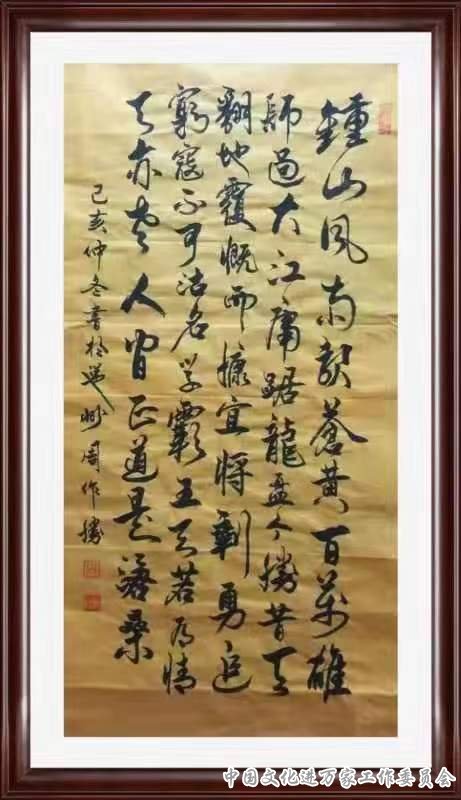 鍾山风雨起蒼黄百萬雄
師過大江虎踞龍盘今勝昔天
翻地覆慨而慷宜将剩勇追
窮寇不可沽名学霸王天若有情
天亦老人间正道是滄桑
己亥仲冬書於 州周作勝
中国文化进万家工作委员会